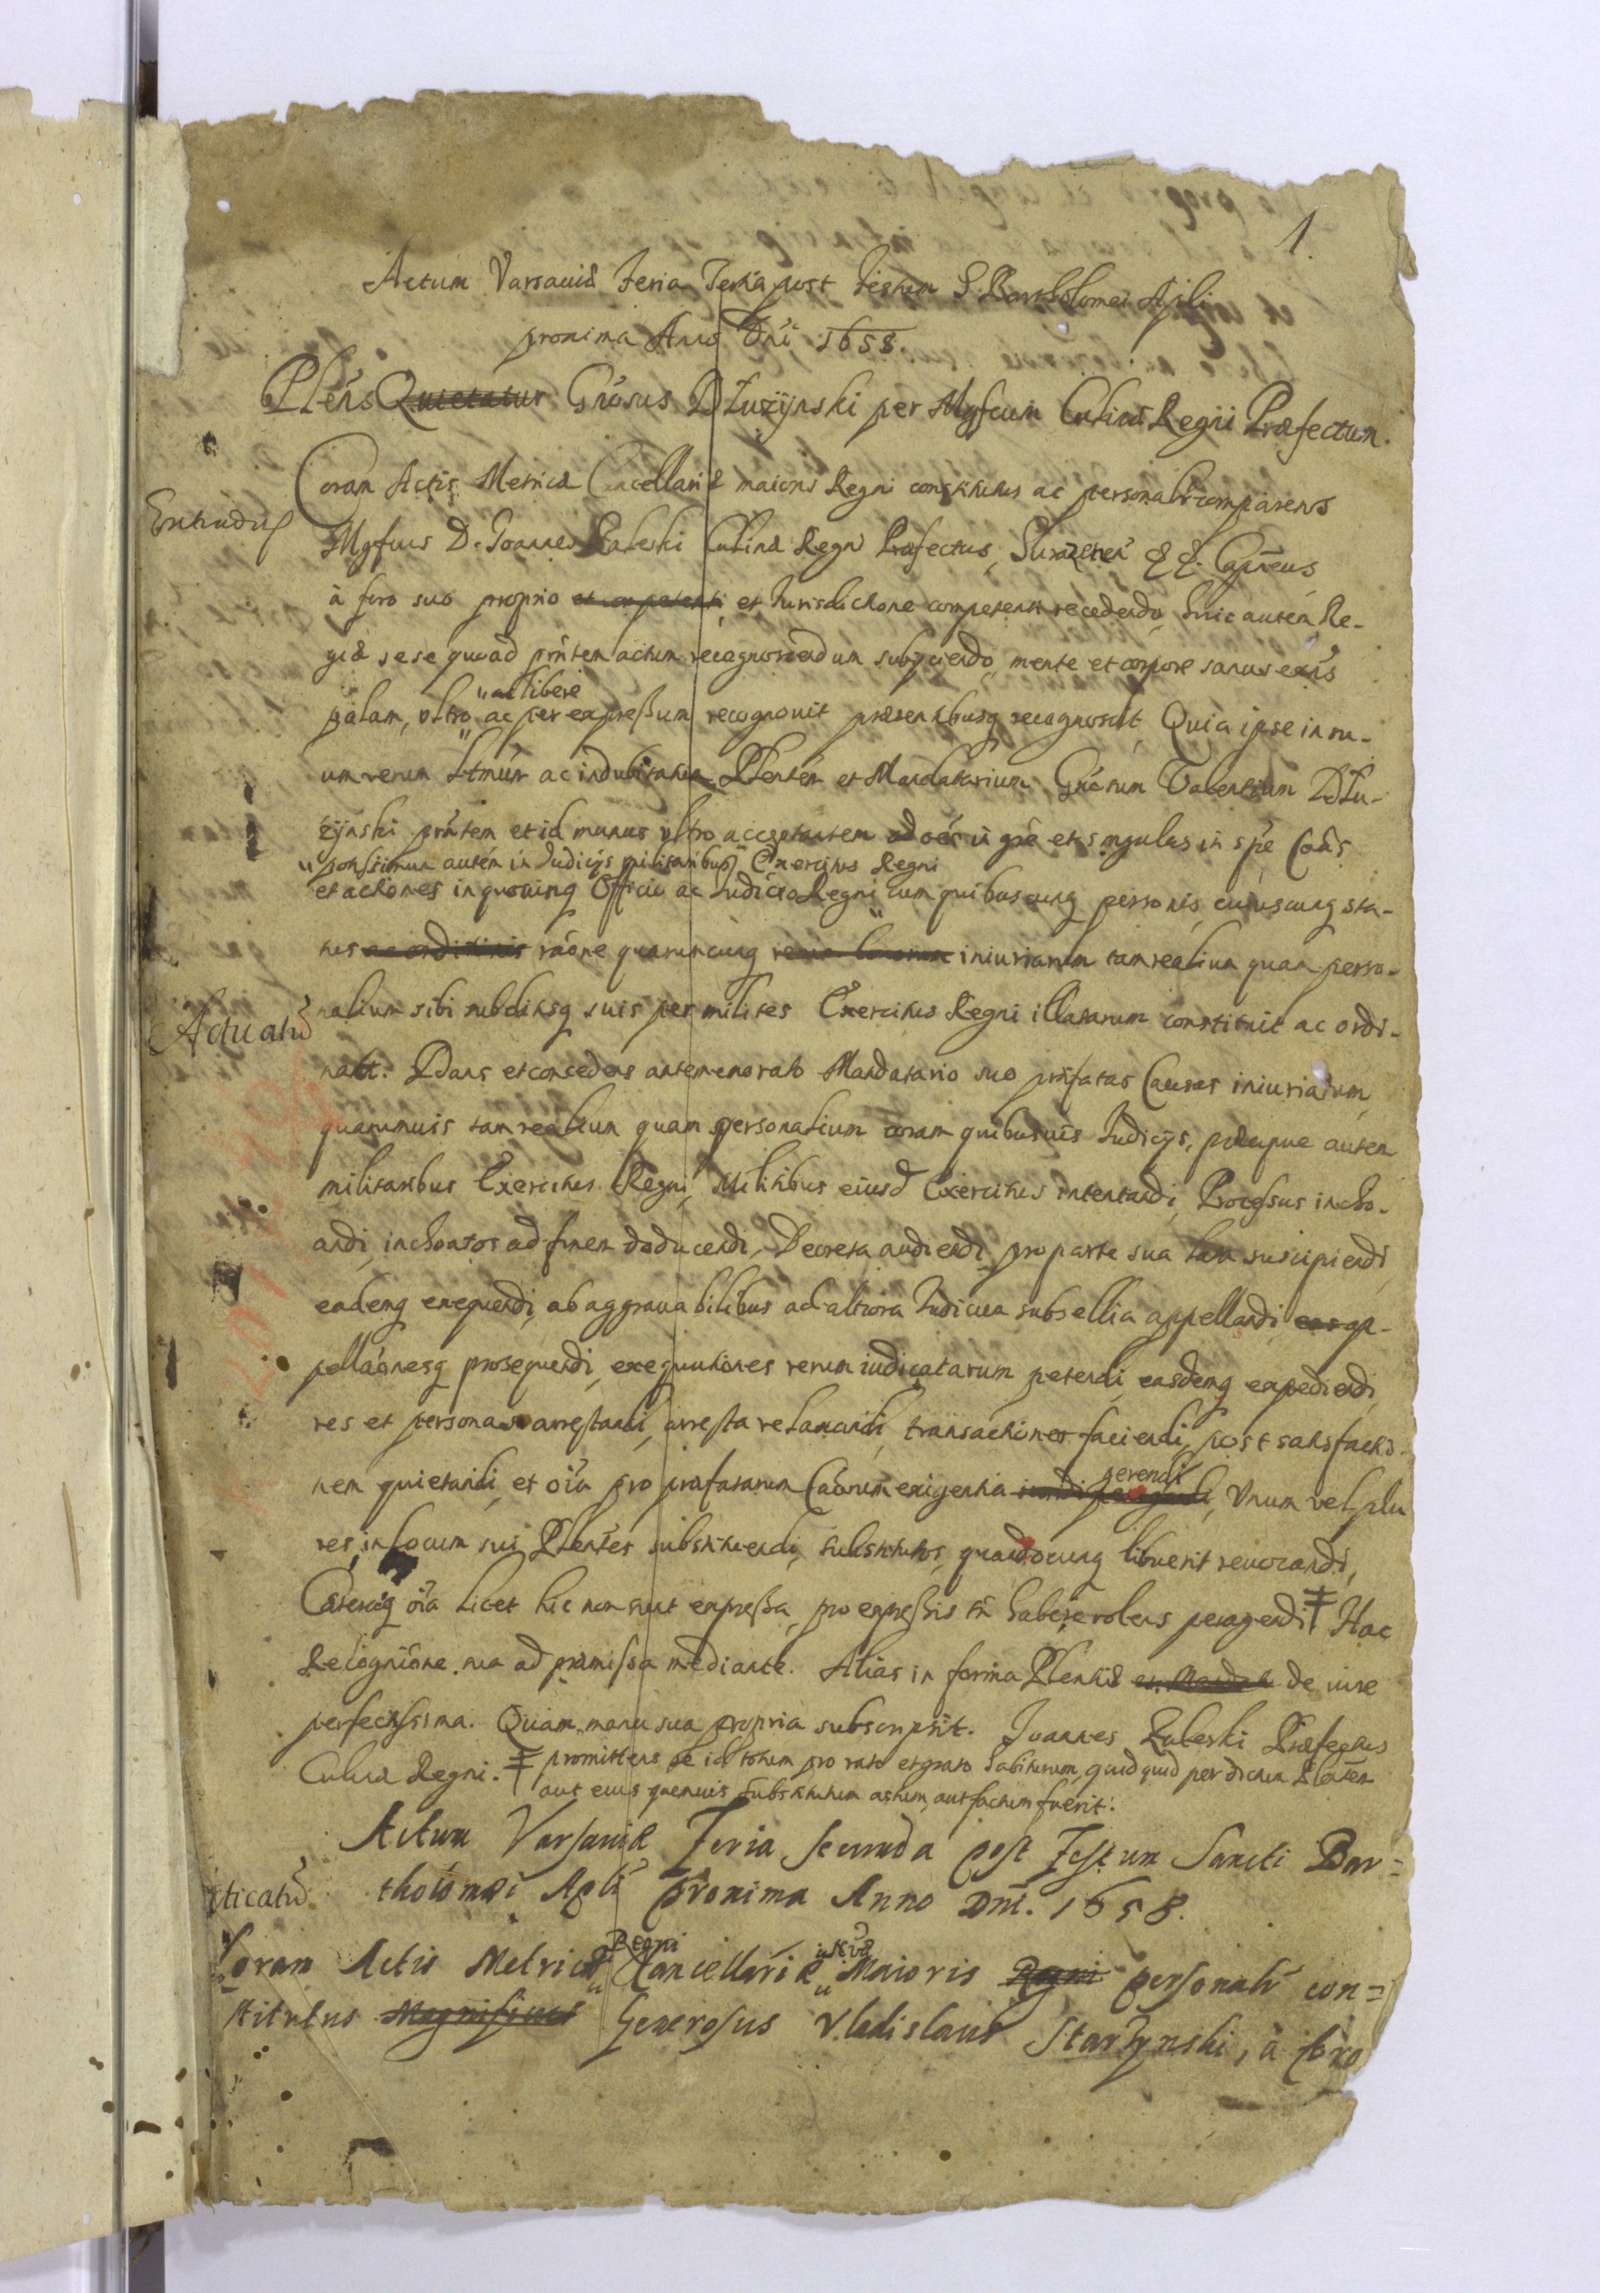 1.
Actum Varsaviæ Feria Tertia post Festum S. Bartholomei Apli
proxima Anno Dni 1658.
Plens Quietatur Gnosus Dłużynski per Mgfcum Culinæ Regni Præfectum.
Coram Actis Metricæ Cancellariæ maioris Regni constitutus ac personalr comparens
Extradit
Mgfcus D. Joannes Zaleski Culinæ Regni Præfectus, &&. Capneus
à foro suo proprio et competenti, et Jurisdictione competenti recedendo, huic autem Re-
giæ sese quoad prntem actum recognoscendum subijciendo, mente et corpore sanus exns
ac libere
palam, ultro ac per expressum recognovit præsentibusq recognoscit, Quia ipse in su-
um verum Ltmum ac indubitatum Plentem et Mandatarium Gnosum Valentinum Dłu-
żynski prntem et id munus ultro acceptantem ad oes in gne et singulas in spe Caas
potissimum autem in Judicijs militaribus Exercitus Regni
et actiones in quovinq Officio ac Judicio Regni cum quibuscunq personis cuiuscunq sta-
tus ac conditionis raone quaruncunq iniuriarum tam realium quam perso-
Acticatū
nalium sibi subditisq suis per milites Exercitus Regni illatarum constituit ac ordi-
navit. Dans et concedens antememorato Mandatario suo præfatas Causas iniuriarum
quarumvis tam realium quam personalium coram quibusvis Judicijs, præcipue autem
militaribus Exercitus Regni, Militibus eiusd Exercitus intentandi, Processus incho-
andi, inchoatos ad finem deducendi, Decreta audiendi, pro parte sua lata suscipiendi
eademq exequendi, ab aggravabilibus ad altiora Judicia subsellia appellandi, ap-
pellaonesq prosequendi, exequutiones rerum iudicatarum petendi, easdemq expediendi,
res et personas arrestandi, arresta relaxandi, transactiones faciendi, post satisfactio-
nem quietandi, et oia pro præfatarum Caarum exigentia gerendi, Unum vel plu
res in locum sui Plentes substituendi, substitutos, quandocunq libuerit revocandi,
Cæteraq oia licet hic non sunt expressa, pro expressis tn habere volens peragendi ‡ Hac
Recognitione sua ad præmissa mediante. Alias in forma Plentiæ et Mandati de iure
perfectissima. Quam manu sua propria subscripsit. Joannes Zaleski Præfectus
Culinæ Regni. ‡ promittens se id totum pro rato et grato habiturum, quidquid per dictum Plentem
aut eius quemvis substitutum actum, aut factum fuerit.
Actum Varsaviæ Feria secunda post Festum Sancti Bar=
thołomæi Apli proxima Anno Dni. 1658.
cticatū
Regni
Coram Actis Metricæ Cancellariæ Maioris Regni personalr con=
stitutus Magnificus Generosus Vladislaus Starzynski, à foro